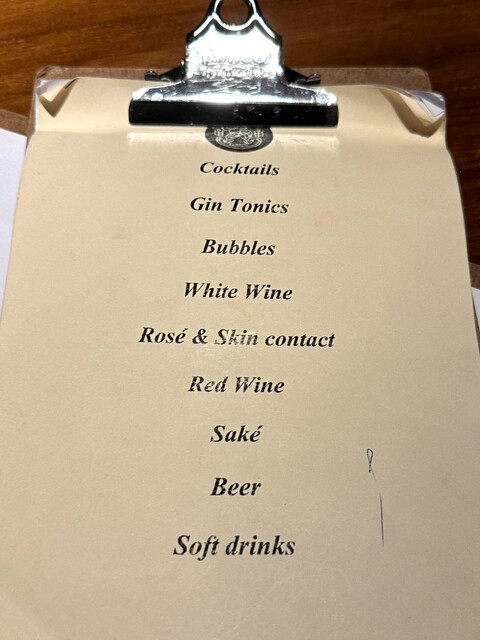 Cocktails
Gin Tonics
Bubbles
White Wine
Rosé & Skin contact
Red Wine
Saké
Beer
Soft drinks